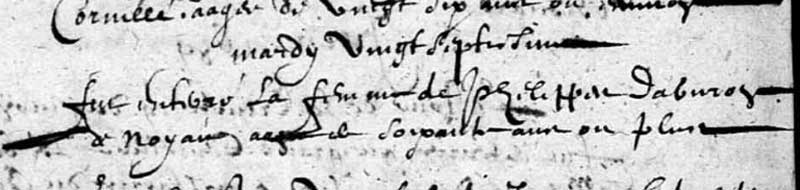 Corneille aagee de vingt six ans ou environ
mardy vingt septiesime
fut enterré La femme de Philippes Daburon
de noyau aagee de soixante ans ou plus